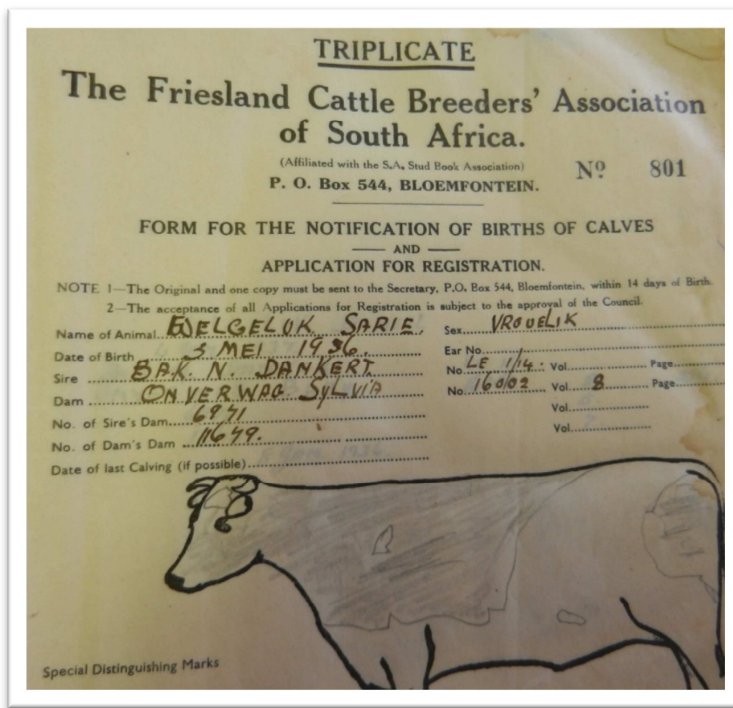 TRIPLICATE
The Friesland Cattle Breeders' Association
of South Africa.
(Affiliated with the S.A. Stud Book Association)
Nº 801
P. O. Box 544, BLOEMFONTEIN.
FORM FOR THE NOTIFICATION OF BIRTHS OF CALVES
AND
APPLICATION FOR REGISTRATION.
NOTE 1—The Original and one copy must be sent to the Secretary, P.O. Box 544, Bloemfontein, within 14 days of Birth.
2—The acceptance of all Applications for Registration is subject to the approval of the Council.
Name of Animal. WELGELUK SARIE. Sex. VROUELIK
Date of Birth 3 MEI 1936. Ear No.
Sire BAK. N. DANKERT. No. LE 1/14. Vol. Page
Dam ONVERWAG SYLVIA No. 16002 Vol. 8 Page
No. of Sire's Dam. 6971 Vol.
No. of Dam's Dam 11679. Vol.
Date of last Calving (if possible)
Special Distinguishing Marks